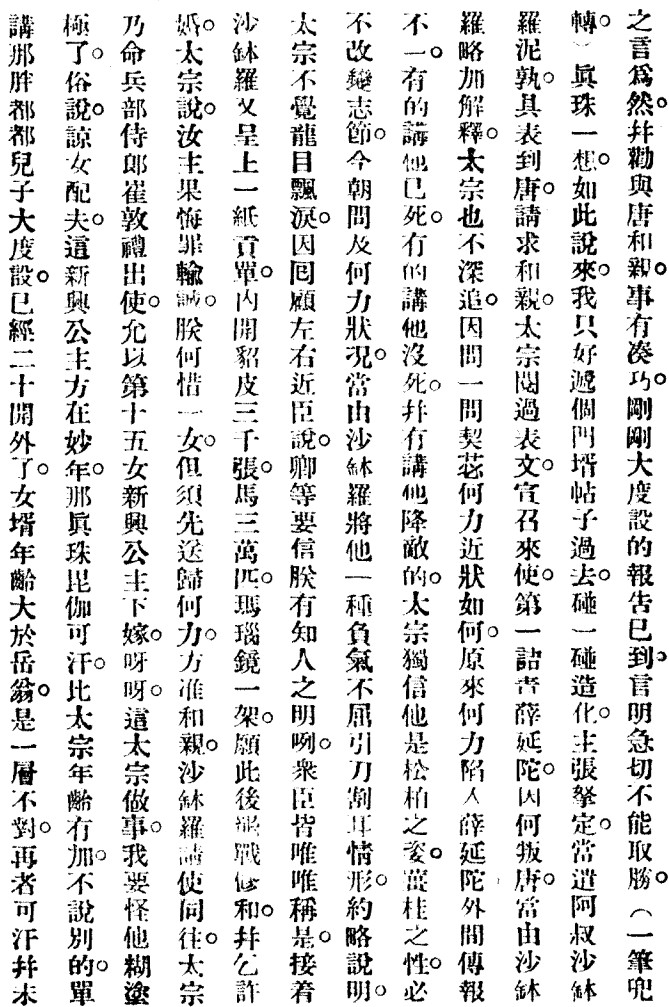 之言爲然。幷勸與唐和親。事有湊巧。剛剛大度設的報吿已到。言明急切不能取勝。（一筆兜
轉）眞珠一想。如此說來。我只好遞個門壻帖子過去。碰一碰造化。主張拏定。當遣阿叔沙鉢
羅泥孰。具表到唐。請求和親。太宗閱過表文。宣召來使。第一詰責薛延陀。因何叛唐。當由沙鉢
羅略加解釋。太宗也不深追。因問一問契苾何力近狀如何。原來何力陷入薛延陀。外間傳報
不一。有的講他已死。有的講他沒死。幷有講他降敵的。太宗獨信他是松柏之姿。薑桂之性。必
不改變志節。今朝問及何力狀況。當由沙鉢羅將他一種負氣不屈引刀割耳情形。約略說明。
太宗不覺龍目飄淚。因囘顧左右近臣說。卿等要信朕有知人之明咧。衆臣皆唯唯稱是。接着
沙鉢羅又呈上一紙貢單。內開貂皮三千張。馬三萬匹。瑪瑙鏡一架。願此後罷戰修和。幷乞許
婚。太宗說。汝主果悔罪輸誠。朕何惜一女。但須先送歸何力。方准和親。沙鉢羅請使同往。太宗
乃命兵部侍郎崔敦禮出使。允以第十五女新興公主下嫁。呀呀。這太宗做事。我要怪他糊塗
極了。俗說。諒女配夫。這新興公主方在妙年。那眞珠毘伽可汗。比太宗年齡有加。不說別的。單
講那胖都都兒子大度設。已經二十開外了。女壻年齡大於岳翁。是一層不對。再者可汗幷未